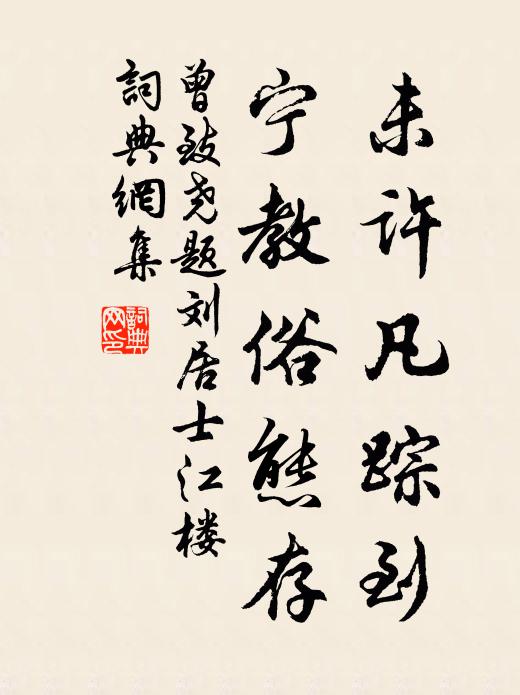 未许凡踪到
宁教俗态存
曾致尧题刘居士江楼
詞典網集
詞典网印